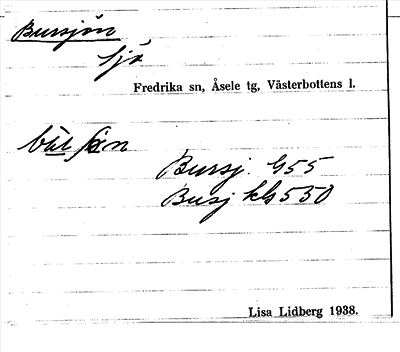 Bursjön
Sjö
Fredrika sn, Åsele tg, Västerbottens l.
Bursj. G55
Busj kG550
Lisa Lidberg 1938.